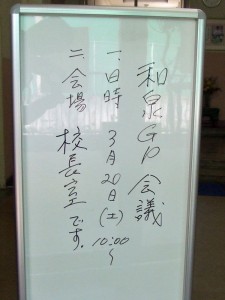 和泉GP会議
一.日時 3月20日(土) 10:00~
二.会場 校長室です.